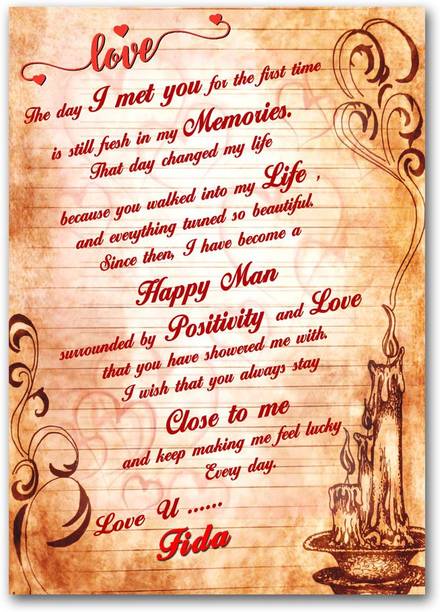 love
The day I met you for the first time
is still fresh in my Memories.
That day changed my life
because you walked into my Life ,
and everything turned so beautiful.
Since then, I have become a
Happy Man
surrounded by Positivity and Love
that you have showered me with.
I wish that you always stay
Close to me
and keep making me feel lucky
Every day.
Love U ......
Fida